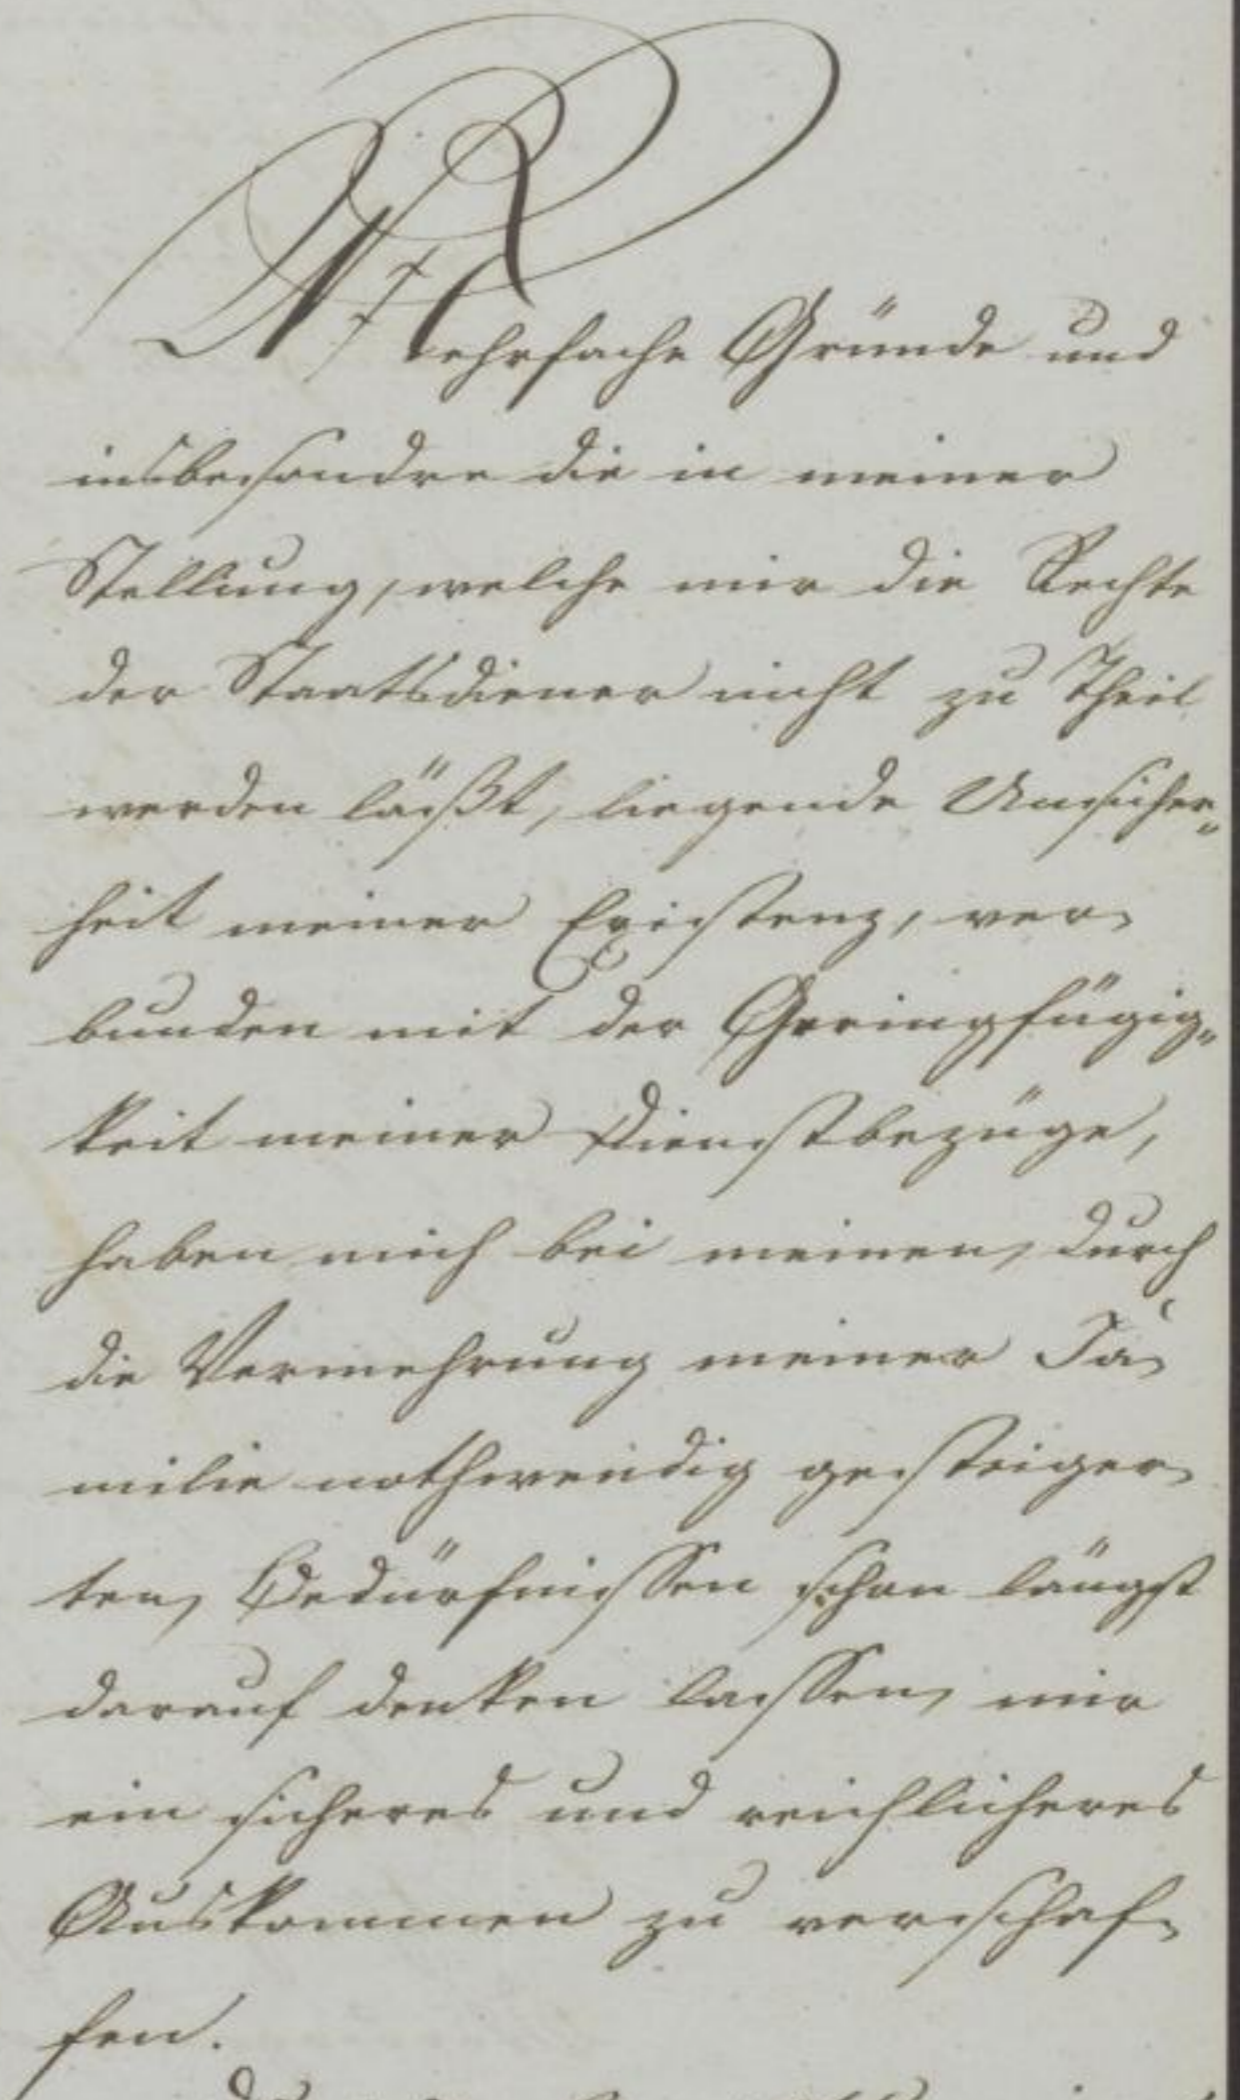 Mehrfache Gründe und
insbesondre die in meiner
Stellung, welche mir die Rechte
der Staatsdiener nicht zu Theil
werden läßt, liegende Unsicher„
heit meiner Existenz, ver-
bunden mit der Geringfügig„
keit meiner Dienstbezüge,
haben mich bei meinen, durch
die Vermehrung meiner Fa-
milie nothwendig gesteiger-
ten, Bedürfnissen schon längst
darauf denken lassen, mir
ein sicheres und reichlicheres
Auskommen zu verschaf-
fen.